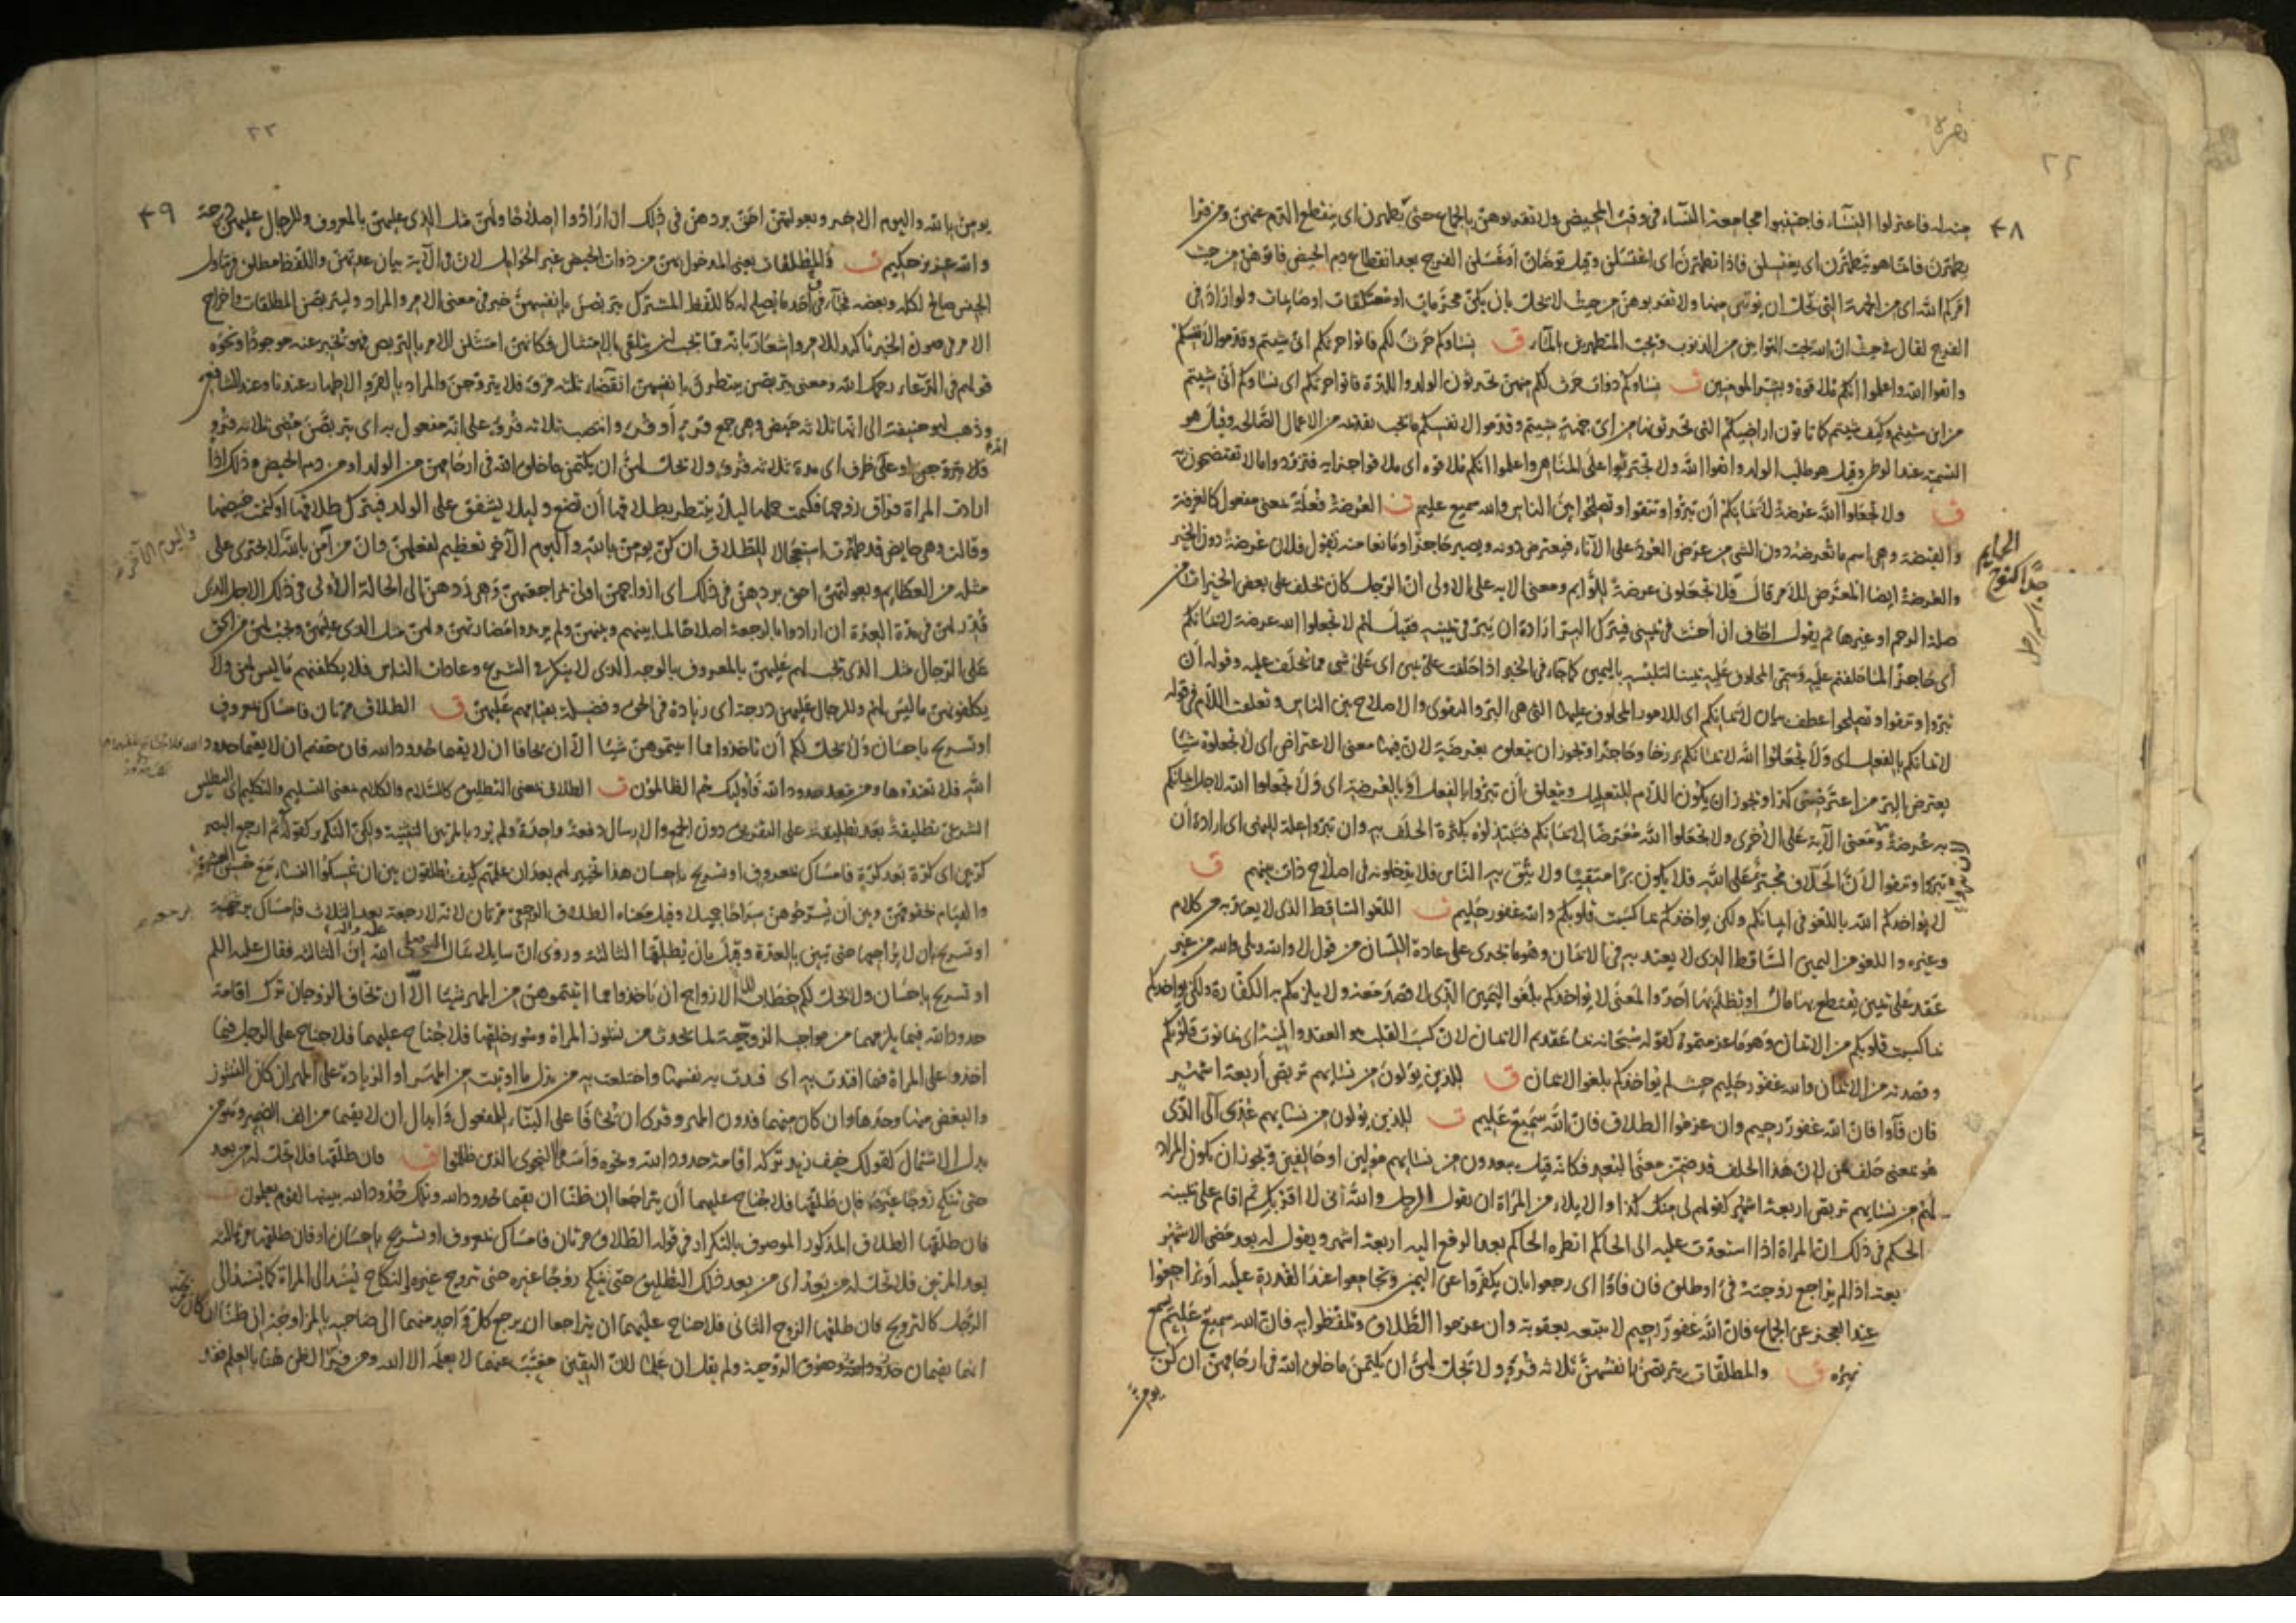 فاعتزلوا النساء فاجتنبوا مجامعة النساء فى وقت المحيض ولا تقربوهن بالجماع حتى يطهرن اى ينقطع الدم عنهن ومن قرا
يطهرن فانما هو يتطهرن اى يغتسلن فاذا تطهرن اى اغتسلن وقيل توضان او غسلن الفرج بعد انقطاع دم الحيض فاتوهن من حيث
امركم الله اى من الجهة التى تحل ان يوتين منها ولا تقربوهن من حيث لا تحل بان يكن محرمات او معتكفات او صايمات ولو اراد فى
الفرج لقال فى حيث ان الله يحب التوابين من الذنوب ويحب المتطهرين بالماء ق نساوكم حرث لكم فاتوا حرثكم انى شيتم وقدموا لانفسكم
واتقوا الله واعلموا انكم ملاقوه وبشر المومنين ت نساوكم ذوات حرث لكم منهن تحرثون الولد واللذة فاتوا حرثكم اى نساوكم انى شيتم
من اين شيتم وكيف شيتم كما تاتون اراضيكم التى تحرثونها من اى جهة شيتم وقدموا لانفسكم ما يجب تقدمه من الاعمال الصالحة وقيل هو
التسمية عند الوطى وقيل هو طلب الولد واتقوا الله ولا تجترئوا على المناهى واعلموا انكم ملاقوه اى ملاقوا جزايه فتزودوا ما لا تفتضحون به
ق ولا تجعلوا الله عرضة لايمانكم ان تبروا وتتقوا وتصلحوا بين الناس والله سميع عليم ت العرضة فعلة بمعنى مفعول كالغرفة
والقبضة وهى اسم ما تعرضه دون الشى من عرض العود على الاناء فيعترض دونه ويصير حاجزا ومانعا منه تقول فلان عرضة دون الخير
والعرضة ايضا المعرض للامر قال فلا تجعلونى عرضة للوايم ومعنى الاية على الاولى ان الرجل كان يحلف على بعض الخيرات من
صلة الرحم او غيرها ثم يقول اخاف ان احنث فى يمينى فيترك البر ارادة ان يبر فى يمينه فقيل لهم لا تجعلوا الله عرضة لايمانكم
اى حاجزا لما حلفتم عليه وسمى المحلوف عليه يمينا لتلبسه باليمين كما جاء فى الخبر اذا حلفت على يمين اى على شى مما تحلف عليه وقوله ان
تبروا وتتقوا وتصلحوا عطف بيان لايمانكم اى للامور المحلوف عليها التى هى البر والتقوى والاصلاح بين الناس وتعلقت اللام فى قوله
لايمانكم بالفعل اى ولا تجعلوا الله لايمانكم برزخا وحاجزا ويجوز ان يتعلق بعرضة لان فيها معنى الاعتراض اى لا تجعلوه شيا
يعترض البر من اعترضنى كذا ويجوز ان يكون اللام للتعليل ويتعلق ان تبروا بالفعل او بالعرضة اى ولا تجعلوا الله لاجل ايمانكم
به عرضة ومعنى الاية على الاخرى ولا تجعلوا الله معرضا لايمانكم فتبتذلوه بكثرة الحلف به وان تبروا علة للنهى اى ارادة ان
تبروا وتتقوا لان الحلاف مجترئ على الله فلا يكون برا متقيا ولا يثق به الناس فلا يدخلونه فى اصلاح ذات بينهم ق
لا يواخذكم الله باللغو فى ايمانكم ولكن يواخذكم بما كسبت قلوبكم والله غفور حليم ت اللغو الساقط الذى لا يعتد به من كلام
وغيره واللغو من اليمين الساقط الذى لا يعتد به فى الايمان وهو ما يجرى على عادة اللسان من قول لا والله وبلى والله من غير
عقد على يمين يقتطع بها مال او يظلم بها احد والمعنى لا يواخذكم بلغو اليمين الذى لا قصد معه ولا يلزمكم به الكفارة ولكن يواخذكم
بما كسبت قلوبكم من الايمان وهو ما عزمتموه كقوله سبحانه بما عقدتم الايمان لان كسب القلب هو العقد والنية اى بما نوت قلوبكم
وقصدته من الايمان والله غفور حليم حيث لم يواخذكم بلغو الايمان ق للذين يولون من نسايهم تربص اربعة اشهر
فان فاوا فان الله غفور رحيم وان عزموا الطلاق فان الله سميع عليم ت للذين يولون من نسايهم عدى آلى الذى
هو بمعنى حلف بمن لان هذا الحلف قد ضمن معنى البعد فكانه قيل يبعدون من نسايهم مولين او حالفين ويجوز ان يكون المراد
لهم من نسايهم تربص اربعة اشهر كقولهم لى منك كذا والايلاء من المراة ان يقول الرجل والله انى لا اقربك ثم اقام على يمينه
الحكم فى ذلك ان المراة اذا استعدت عليه الى الحاكم انظره الحاكم بعد الرفع اليه اربعة اشهر ويقول له بعد مضى الاشهر
بعته اذا لم يراجع زوجته فئ او طلق فان فاوا اى رجعوا بان يكفروا عن اليمين ويجامعوا عند القدرة عليه او يراجعوا
عند العجز عن الجماع فان الله غفور رحيم لا يتبعه بعقوبة وان عزموا الطلاق وتلفظوا به فان الله سميع عليم يسمع
ق والمطلقات يتربصن بانفسهن ثلاثه قروء ولا تحل لهن ان يكتمن ما خلق الله فى ارحامهن ان كن
يومن
يومن بالله واليوم الاخر وبعولتهن احق بردهن فى ذلك ان ارادوا اصلاحا ولهن مثل الذى عليهن بالمعروف وللرجال عليهن درجة
والله عزيز حكيم ت والمطلقات يعنى المدخول بهن من ذوات الحيض غير الحوامل لان فى الاية بيان عدتهن واللفظ مطلق فى تناول
الجنس صالح لكله وبعضه فجاء فى احد ما يصلح له كاللفظ المشترك يتربصن بانفسهن خبر فى معنى الامر والمراد وليتربصن المطلقات واخراج
الامر فى صورة الخبر تاكيد للامر واشعار بانه مما يجب ان يتلقى بالامتثال فكانهن امتثلن الامر بالتربص فهو يخبر عنه موجودا ونحوه
قولهم فى الدعاء رحمك الله ومعنى يتربصن ينتظرن بانفسهن انقضاء ثلثه قروء فلا يتزوجن والمراد بالقروء الاطهار عندنا وعند الشافعى
وذهب ابو حنيفة الى انها ثلاثه حيض وهى جمع قرء او قرء وانتصب ثلاثه قروء على انه مفعول به اى يتربصن مضى ثلاثه قروء
فلا يتزوجن او على ظرف اى مدة ثلاثه قروء ولا تحل لهن ان يكتمن ما خلق الله فى ارحامهن من الولد او من دم الحيض وذلك اذا
ارادت المراة فراق زوجها فكتمت حملها ليلا ينتظر بطلاقها ان تضع وليلا يشفق على الولد فيترك طلاقها او كتمت حيضها
وقالت وهى حايض قد طهرت استعجالا للطلاق ان كن يومن بالله واليوم الآخر تعظيم لفعلهن وان من آمن بالله لا يجترى على
مثله من العظايم وبعولتهن احق بردهن فى ذلك اى ازواجهن اولى بمراجعتهن وهى ردهن الى الحالة الاولى فى ذلك الاجل الذى
قدر لهن فى مدة العدة ان ارادوا بالرجعة اصلاحا لما بينهم وبينهن ولم يريدوا مضارتهن ولهن مثل الذى عليهن ويجب لهن من الحق
على الرجال مثل الذى يجب لهم عليهن بالمعروف بالوجه الذى لا ينكر فى الشرع وعادات الناس فلا يكلفنهم ما ليس لهن ولا
يكلفونهن ما ليس لهم وللرجال عليهن درجة اى زيادة فى الحق وفضيلة بقيامهم عليهن ق الطلاق مرتان فامساك بمعروف
او تسريح باحسان ولا يحل لكم ان تاخذوا مما اتيتموهن شيا الا ان يخافا ان لا يقيما حدود الله فان خفتم ان لا يقيما حدود
الله فلا تعتدوها ومن يتعد حدود الله فاوليك هم الظالمون ت الطلاق بمعنى التطليق كالسلام والكلام بمعنى التسليم والتكليم اى التطليق
الشرعى تطليقة بعد تطليقة على التفريق دون الجمع والارسال دفعة واحدة ولم يرد بالمرتين التثنية ولكن التكرير كقوله ثم ارجع البصر
كرتين اى كرة بعد كرة فامساك بمعروف او تسريح باحسان هذا تخيير لهم بعد ان علمهم كيف يطلقون بين ان يمسكوا النساء مع حسن العشرة
والقيام بحقوقهن وبين ان يسرحوهن سراحا جميلا وقيل معناه الطلاق الرجعى مرتان لانه لا رجعة بعد الثلاث فامساك برجعة
او تسريح بان لا يراجعها حتى تبين بالعدة وقيل بان يطلقها الثالثة وروى ان سايلا سال النبى صلى الله اين الثالثة فقال عليه السلم
او تسريح باحسان ولا يحل لكم خطاب للازواج ان ياخذوا مما اتيتموهن من المهر شيئا الا ان تخاف الزوجان ترك اقامة
حدود الله فيما يلزمهما من مواجب الزوجية لما يحدث من نشوز المراة وسوء خلقها فلا جناح عليهما فلا جناح على الرجل فيما
اخذ وا على المراة فيما افتدت به اى فدت به نفسها واختلعت به من بذل ما اوتيت من المهر او الزيادة على المهر ان كان النشوز
والبغض منها وحدها وان كان منهما فدون المهر وقرئ ان يخافا على البناء للمفعول وابدال ان لا يقيما من الف الضمير وهو من
بدل الاشتمال كقولك خيف زيد تركه اقامة حدود الله ونحوه واسروا النجوى الذين ظلموا ق فان طلقها فلا تحل له من بعد
حتى تنكح زوجا غيره فان طلقها فلا جناح عليهما ان يتراجعا ان ظنا ان يقيما حدود الله وتلك حدود الله يبينها لقوم يعلمون
فان طلقها الطلاق المذكور الموصوف بالتكرار فى قوله الطلاق مرتان فامساك بمعروف او تسريح باحسان او فان طلقها مرة ثالثة
بعد المرتين فلا تحل له من بعد اى من بعد ذلك التطليق حتى تنكح زوجا غيره حتى تتزوج غيره والنكاح يسند الى المراة كما يسند الى
الرجل كالتزويج فان طلقها الزوج الثانى فلا جناح عليهما ان يتراجعا ان يرجع كل واحد منهما الى صاحبه بالمزاوجة ان ظنا ان كان
انهما يقيمان حدود الله وحقوق الزوجية ولم يقل ان علما لان اليقين مغيب عنهما لا يعلمه الا الله ومن فسر الظن هنا بالعلم فقد